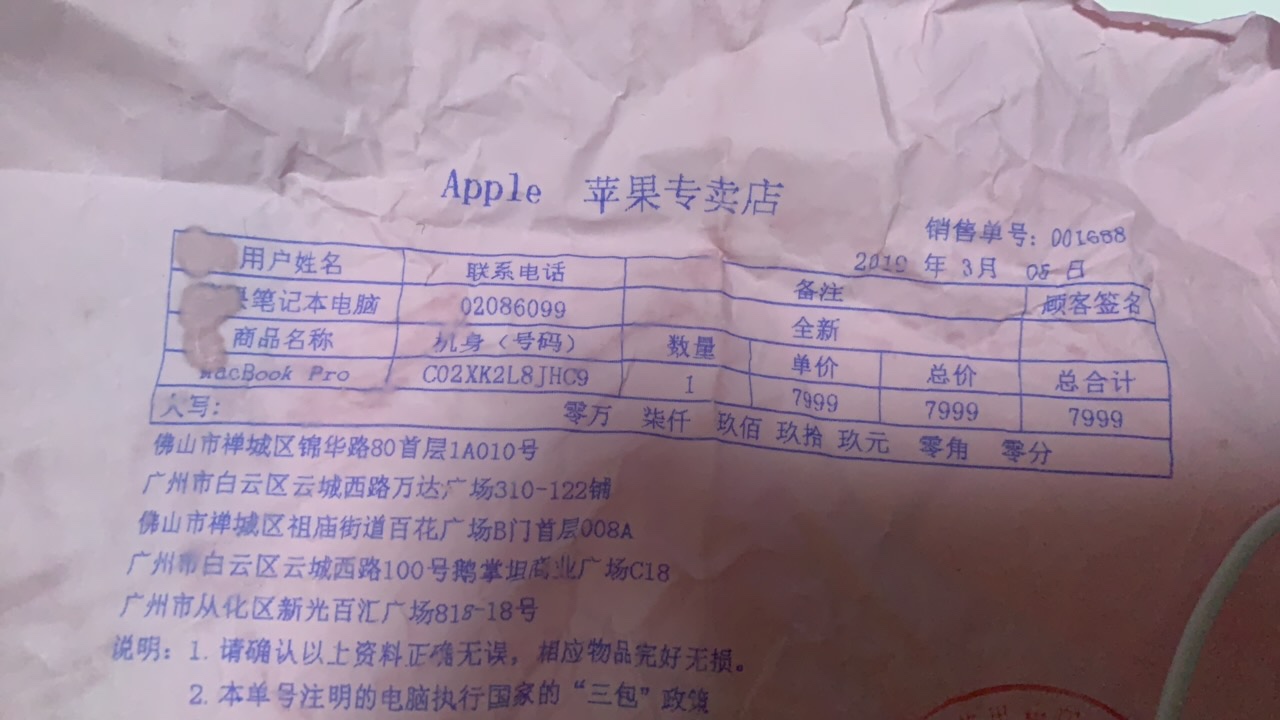 Apple 苹果专卖店
销售单号: 001688
2019 年 3月 05 日
用户姓名 联系电话 备注 顾客签名
笔记本电脑 02086099 全新
商品名称 机身(号码) 数量 单价 总价 总合计
MacBook Pro C02XK2L8JHC9 1 7999 7999 7999
大写: 零万 柒仟 玖佰 玖拾 玖元 零角 零分
佛山市禅城区锦华路80首层1A010号
广州市白云区云城西路万达广场310-122铺
佛山市禅城区祖庙街道百花广场B门首层008A
广州市白云区云城西路100号鹅掌坦商业广场C18
广州市从化区新光百汇广场81s-18号
说明: 1. 请确认以上资料正确无误, 相应物品完好无损。
2. 本单号注明的电脑执行国家的“三包”政策